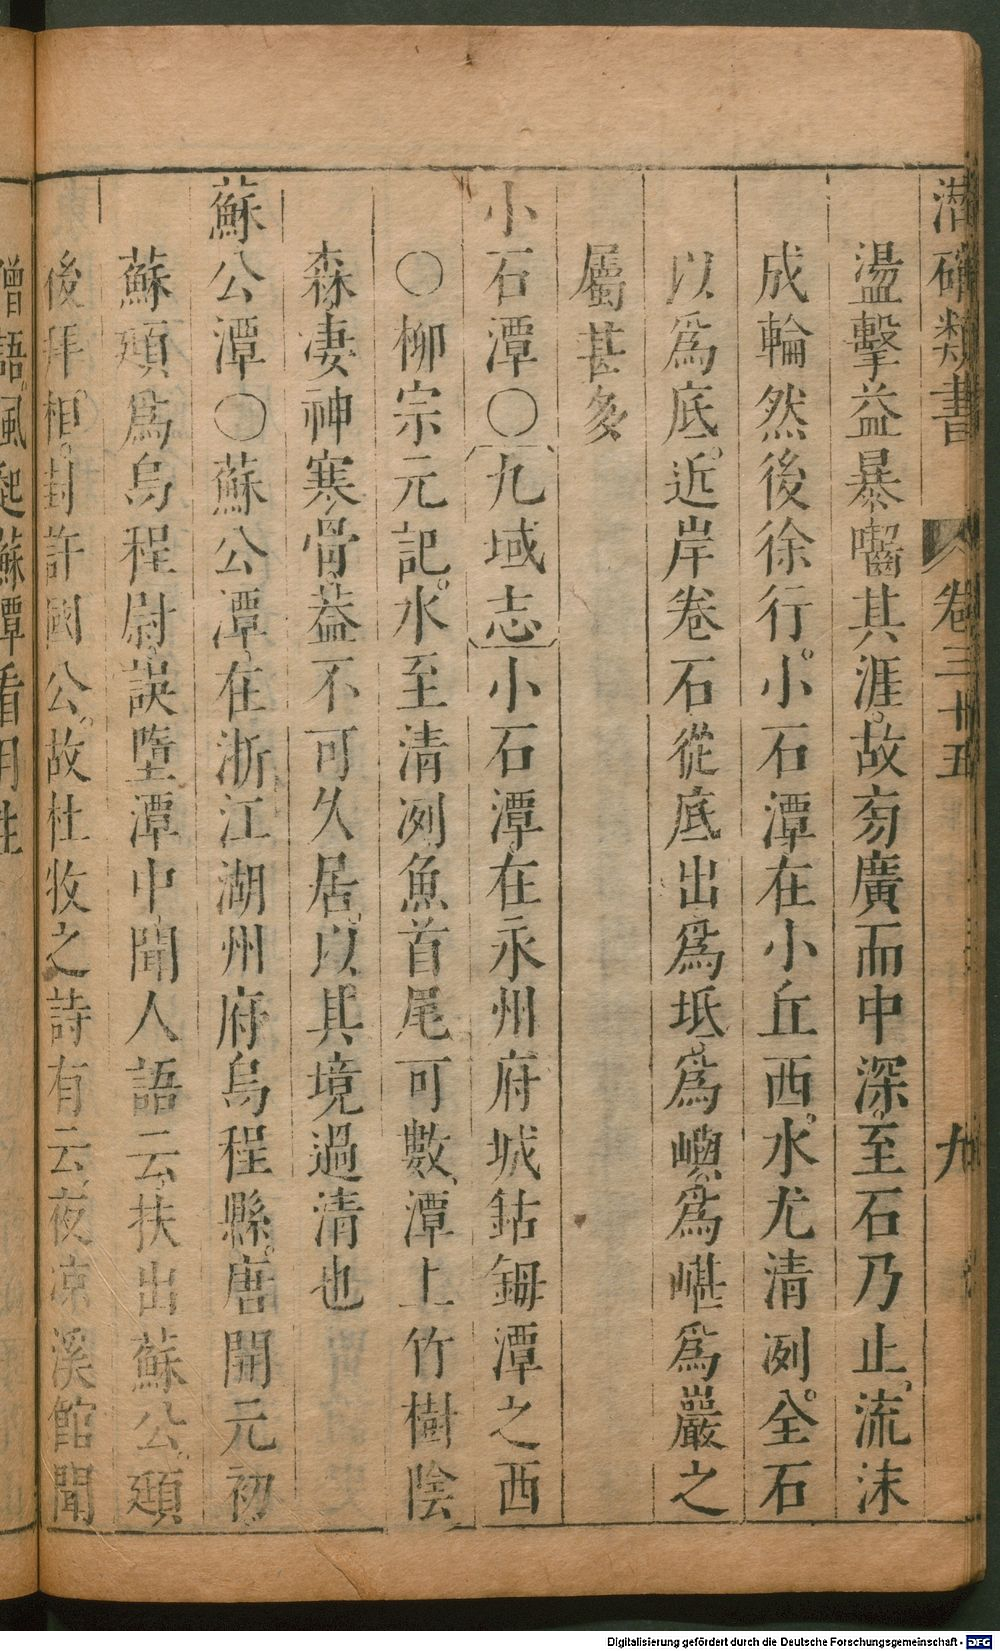 潛確類書 卷三十五 九
盪擊益暴嚙其涯。故旁廣而中深。至石乃止。流沫
成輪然後徐行。小石潭在小丘西。水尤清洌。全石
以爲底。近岸卷石從底出爲坻、爲嶼、爲嵁爲巖之
屬甚多
小石潭〇九域志小石潭、在永州府城鈷鉧潭之西
〇柳宗元記。水至清洌魚首尾可數、潭上竹樹陰
森、凄神寒骨、葢不可久居。以其境過清也
蘇公潭〇蘇公潭、在浙江湖州府烏程縣。唐開元初
蘇頲爲烏程尉、誤墮潭中、聞人語云、扶出蘇公。頲
後拜相。封許國公。故杜牧之詩有云、夜凉溪館聞
僧語。風起蘇潭看月生
Digitalisierung gefördert durch die Deutsche Forschungsgemeinschaft - DFG